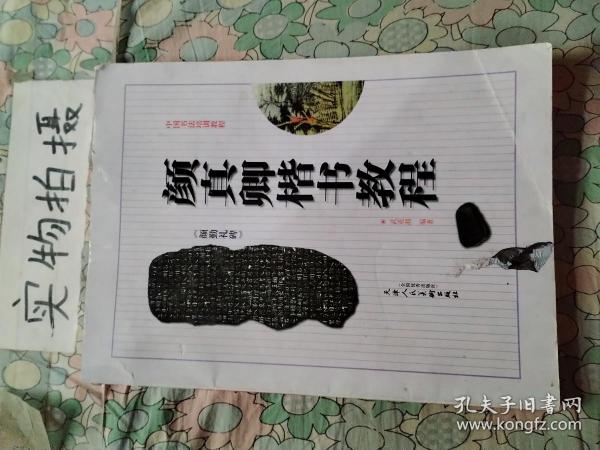 实物拍摄
中国书法培训教程
颜真卿楷书教程
《颜勤礼碑》
编著
天津人民美术出版社
孔夫子旧书网
kongfz.com